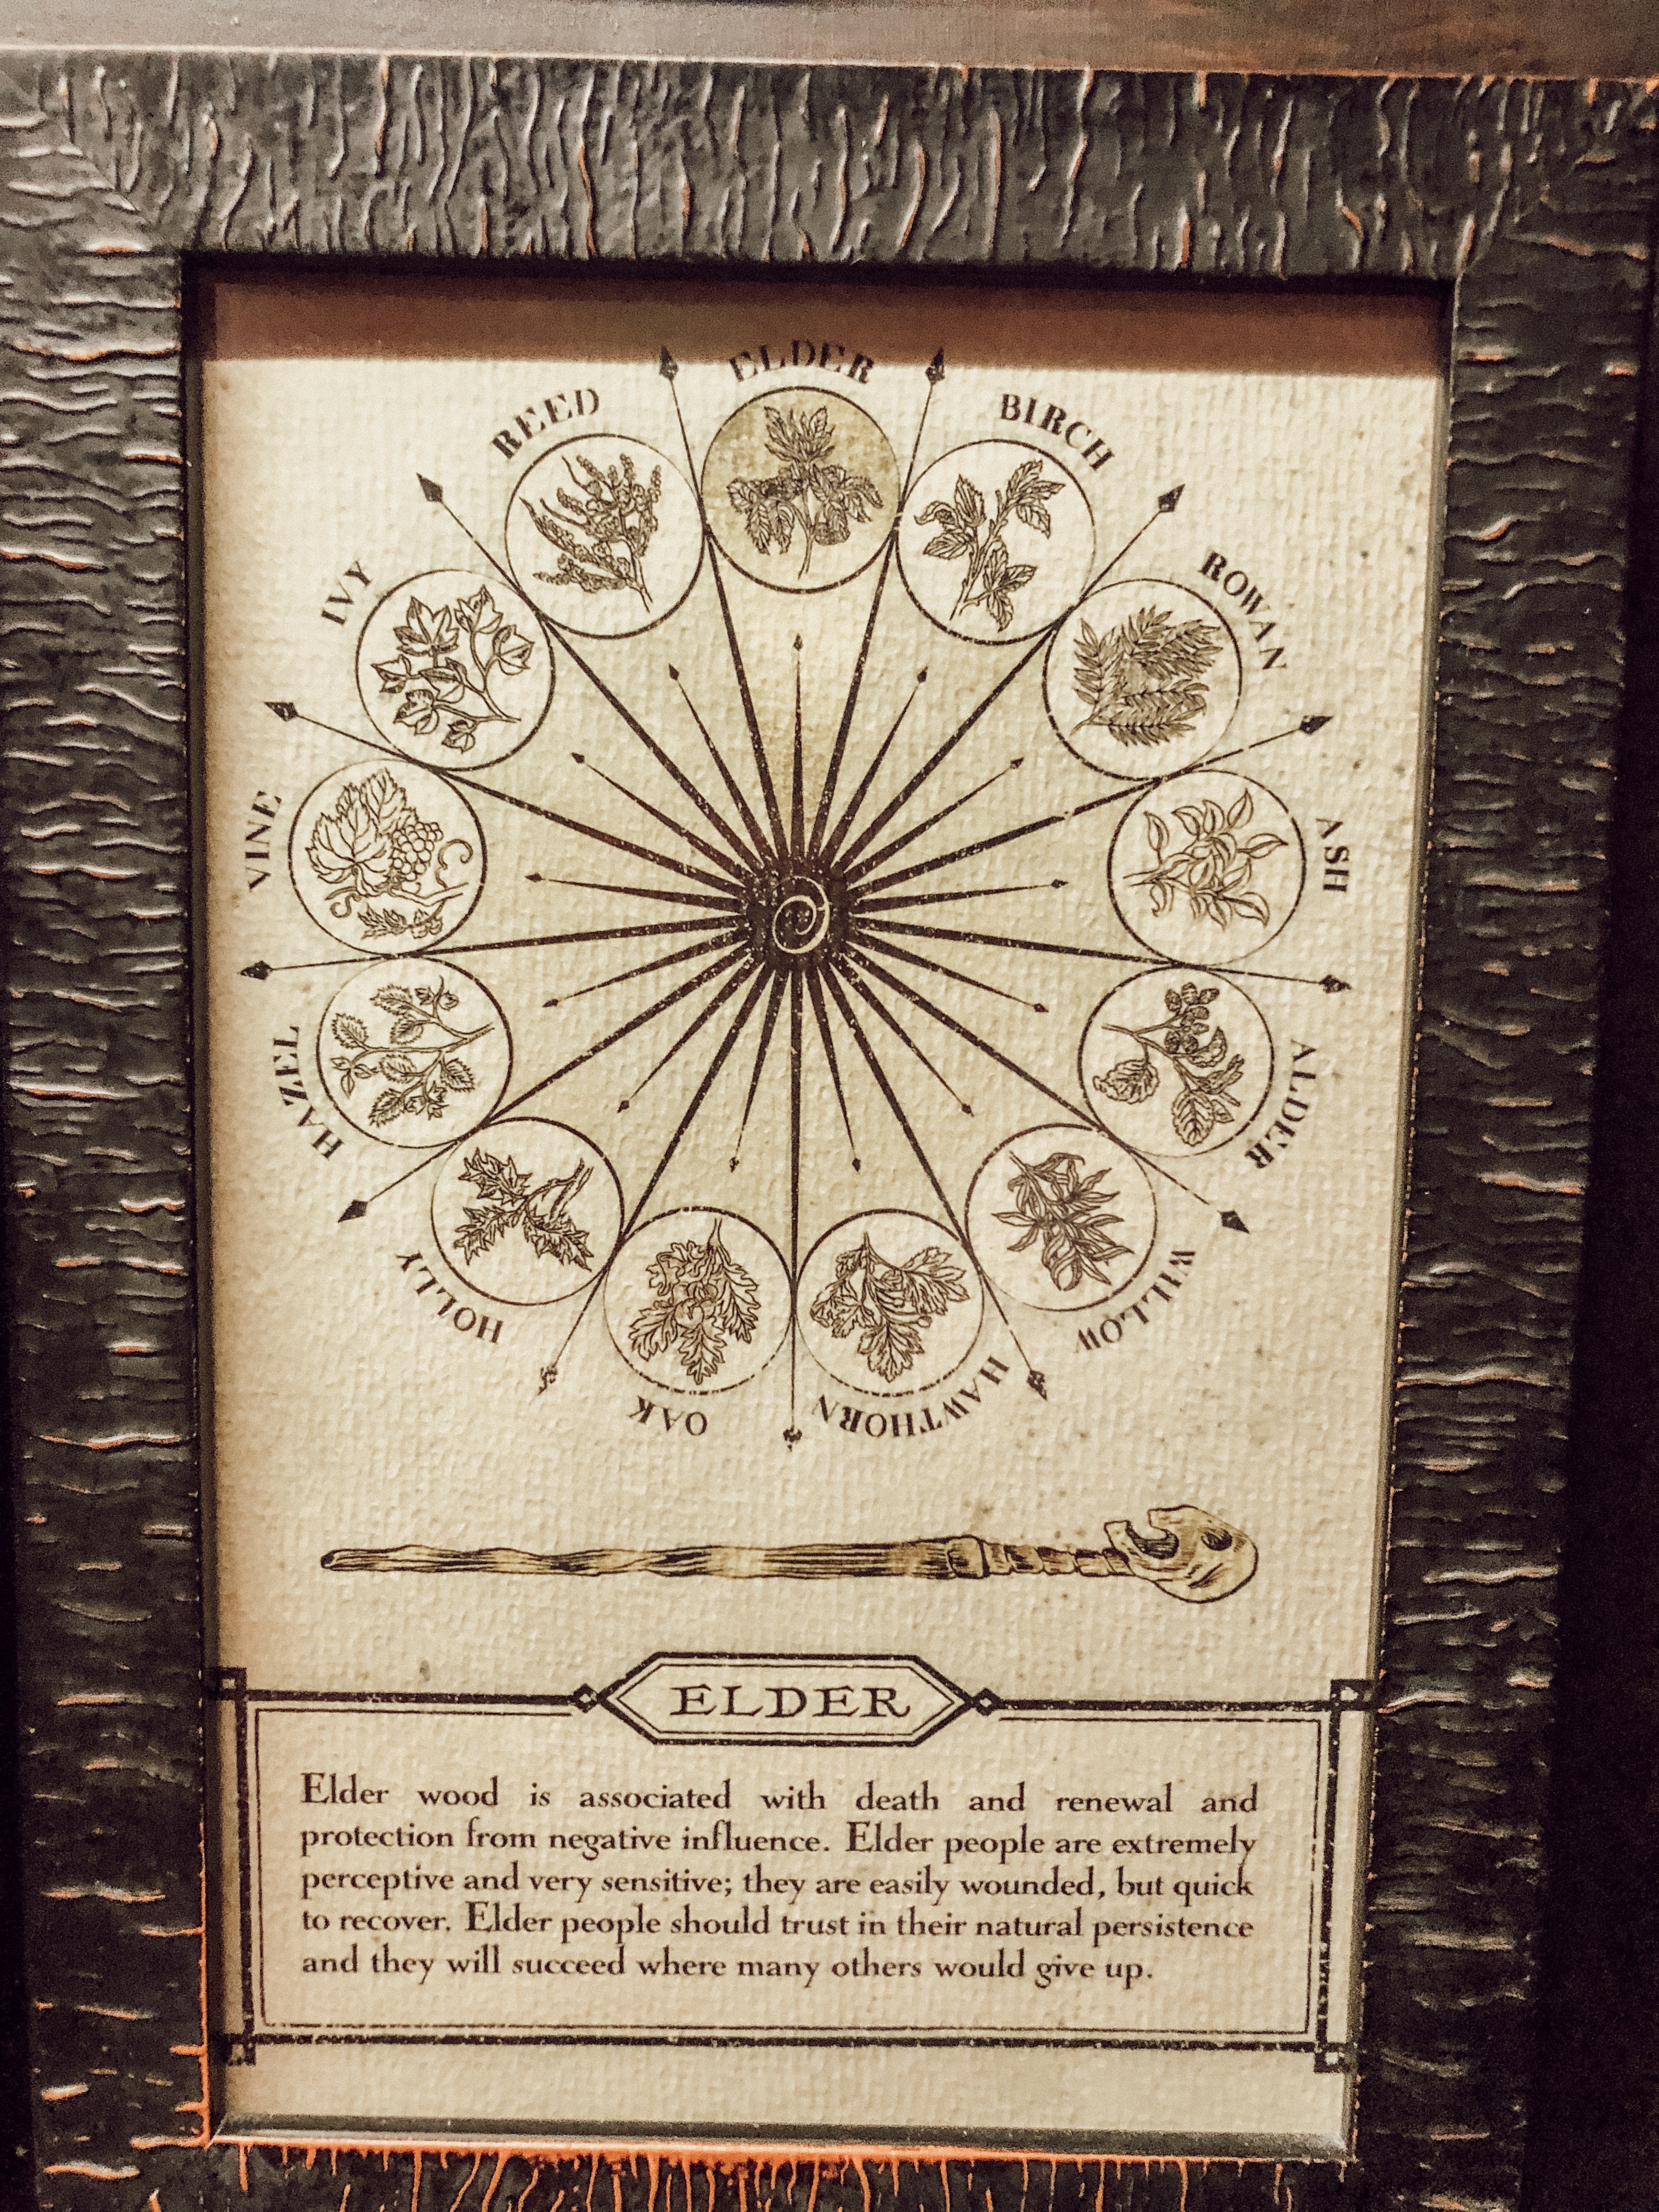 ELDER
BIRCH
ROWAN
ASH
ALDER
WILLOW
HAWTHORN
OAK
HOLLY
HAZEL
VINE
IVY
REED
ELDER
Elder wood is associated with death and renewal and
protection from negative influence. Elder people are extremely
perceptive and very sensitive; they are easily wounded, but quick
to recover. Elder people should trust in their natural persistence
and they will succeed where many others would give up.